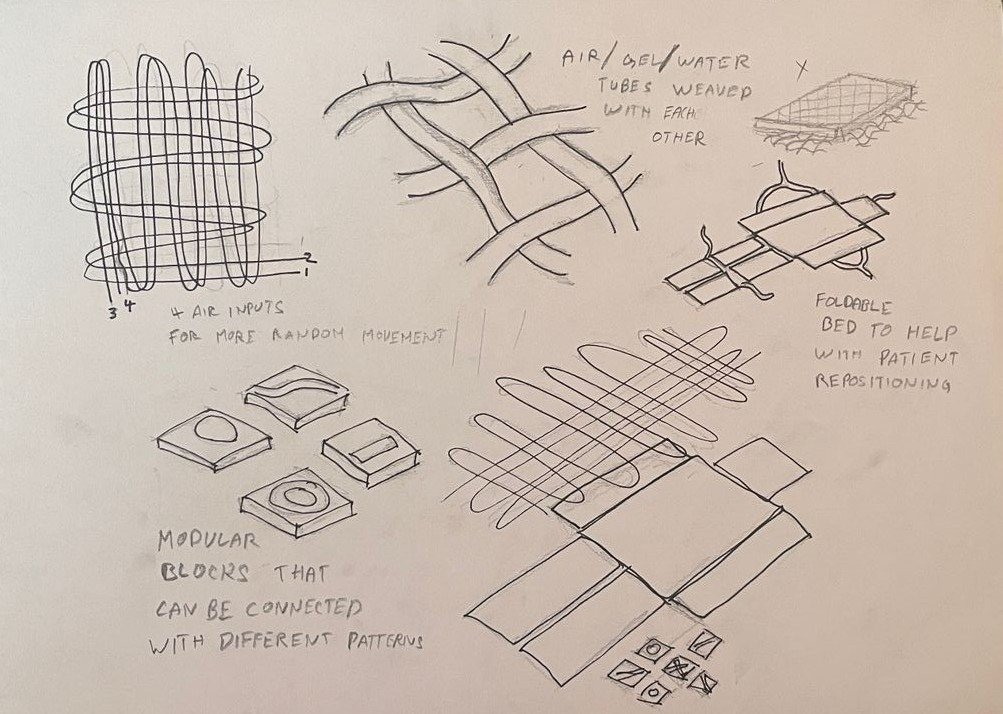 AIR/GEL/WATER
TUBES WEAVED
WITH EACH
OTHER
2
1
3 4
4 AIR INPUTS
FOR MORE RANDOM MOVEMENT
FOLDABLE
BED TO HELP
WITH PATIENT
REPOSITIONING
MODULAR
BLOCKS THAT
CAN BE CONNECTED
WITH DIFFERENT PATTERNS